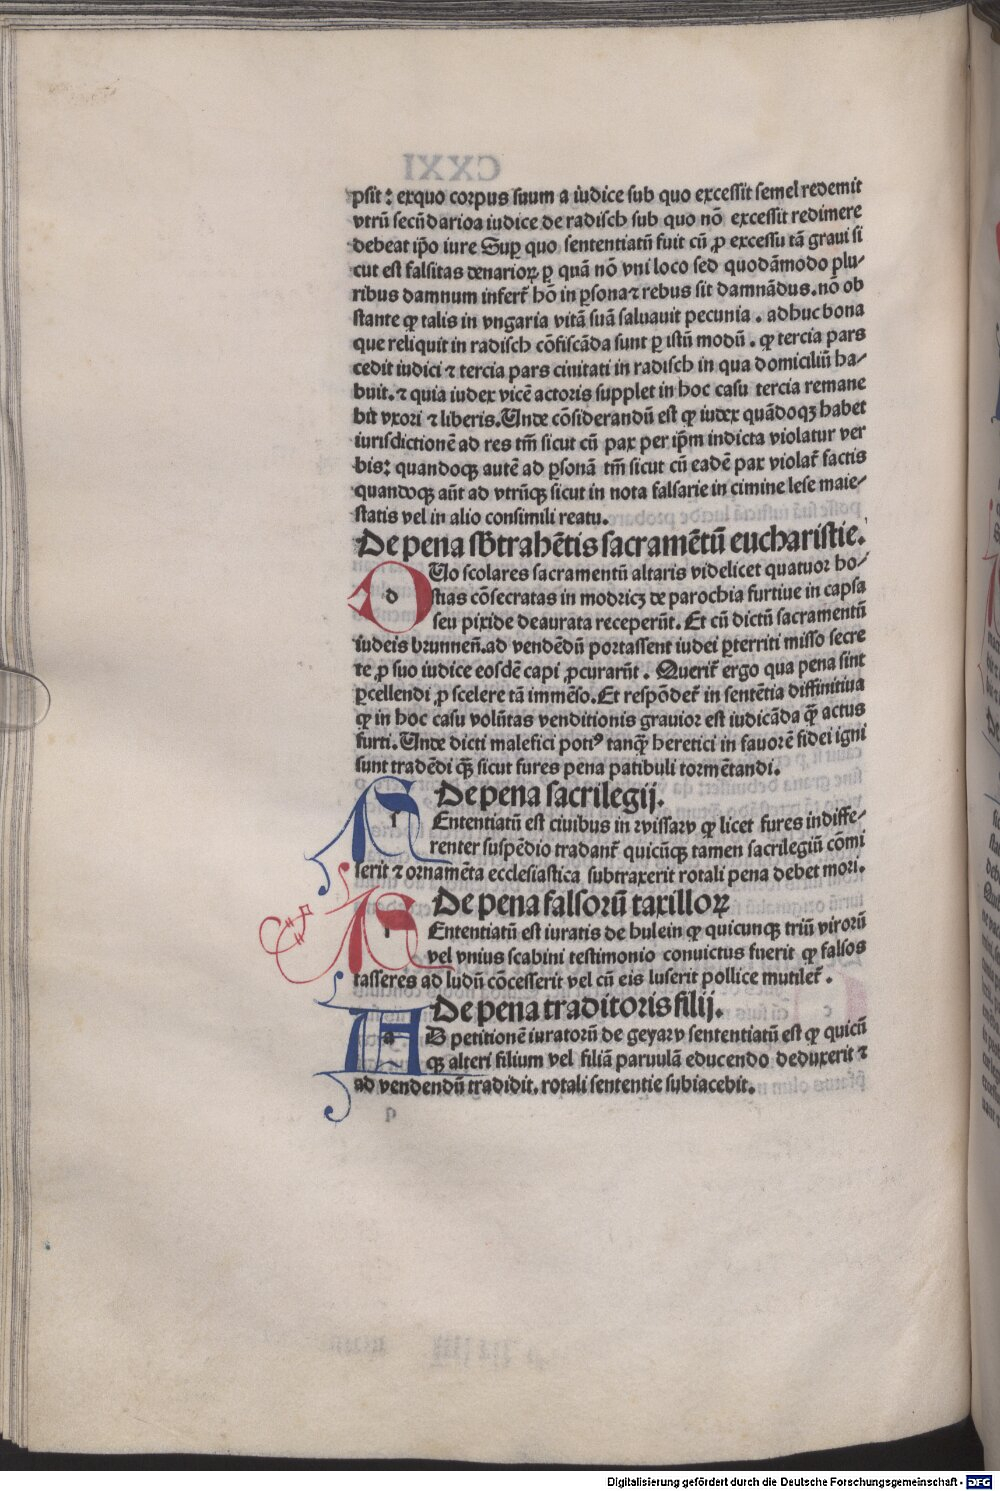 psit: exquo corpus suum a iudice sub quo excessit semel redemit
vtrũ secũdarioa iudice de radisch sub quo nõ excessit redimere
debeat ip̃o iure Sup̱ quo sententiatũ fuit cũ ꝓ excessu tã graui si
cut est falsitas denarioꝝ ꝑ quã nõ vni loco sed quodãmodo plu⸗
ribus damnum infert̃ hõ in ꝑsona ⁊ rebus sit damnãdus. nõ ob
stante ꝙ talis in vngaria vitã suã saluauit pecunia. adhuc bona
que reliquit in radisch cõfiscãda sunt ꝑ istũ modũ. ꝙ tercia pars
cedit iudici ⁊ tercia pars ciuitati in radisch in qua domiciliũ ha⸗
buit. ⁊ quia iudex vicẽ actoris supplet in hoc casu tercia remane
bit vxori ⁊ liberis. Unde cõsiderandũ est ꝙ iudex quãdoqꝫ habet
iurisdictionẽ ad res tm̃ sicut cũ pax per ip̃m indicta violatur ver
bis: quandoqꝫ autẽ ad ꝑsonã tm̃ sicut cũ eadẽ pax violat̃ factis
quandoqꝫ aũt ad vtrũqꝫ sicut in nota falsarie in cimine lese maie⸗
statis vel in alio consimili reatu.
De pena sb̃trahẽtis sacramẽtũ eucharistie.
d Uo scolares sacramentũ altaris videlicet quatuor ho⸗
stias cõsecratas in modricꝫ de parochia furtiue in capsa
seu pixide deaurata receperũt. Et cũ dictũ sacramentũ
iudeis brunneñ. ad vendẽdũ portassent iudei ꝑterriti misso secre
te ꝓ suo iudice eosdẽ capi ꝓcurarũt. Querit̃ ergo qua pena sint
ꝑcellendi ꝓ scelere tã immẽso. Et respõdet̃ in sentẽtia diffinitiua
ꝙ in hoc casu volũtas venditionis grauior est iudicãda qꝫ̃ actus
furti. Unde dicti malefici potiꝰ tanqꝫ̃ heretici in fauorẽ fidei igni
sunt tradẽdi qꝫ̃ sicut fures pena patibuli tormẽtandi.
De pena sacrilegij.
s Ententiatũ est ciuibus in wissaw ꝙ licet fures indiffe⸗
renter suspẽdio tradant̃ quicũqꝫ tamen sacrilegiũ cõmi
serit ⁊ ornamẽta ecclesiastica subtraxerit rotali pena debet mori.
De pena falsorũ taxilloꝝ
s Ententiatũ est iuratis de bulein ꝙ quicunqꝫ triũ virorũ
vel vnius scabini testimonio conuictus fuerit ꝙ falsos
tasseres ad ludũ cõcesserit vel cũ eis luserit pollice mutilet̃.
De pena traditoris filij.
a D petitionẽ iuratorũ de geyaw sententiatũ est ꝙ quicũ
qꝫ alteri filium vel filiã paruulã educendo deduxerit ⁊
ad vendendũ tradidit. rotali sententie subiacebit.
Digitalisierung gefördert durch die Deutsche Forschungsgemeinschaft - DFG